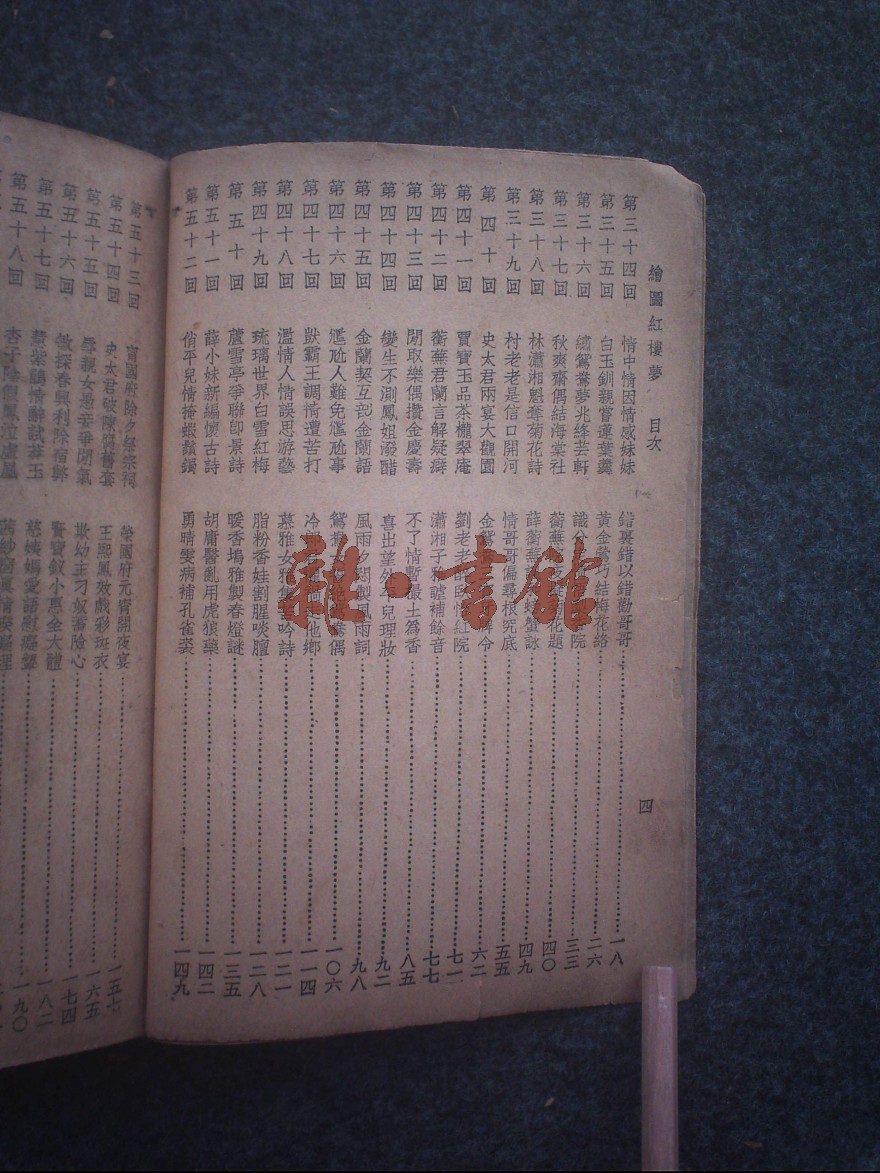 繪圖紅樓夢 目次
四
第三十四回 情中情因情感妹妹 錯裏錯以錯勸哥哥 一八
第三十五回 白玉釧親嘗蓮葉羹 黃金鶯巧結梅花絡 二六
第三十六回 繡鴛鴦夢兆絳芸軒 識分 院 三三
第三十七回 秋爽齋偶結海棠社 蘅蕪 菊花題 四〇
第三十八回 林瀟湘魁奪菊花詩 薛蘅蕪 螃蟹詠 四九
第三十九回 村老老是信口開河 情哥哥偏尋根究底 五五
第四十回 史太君兩宴大觀園 金鴛 牌令 六二
第四十一回 賈寶玉品茶櫳翠庵 劉老老醉臥怡紅院 七一
第四十二回 蘅蕪君蘭言解疑癖 瀟湘子雅謔補餘音 七七
第四十三回 閒取樂偶攢金慶壽 不了情暫撮土爲香 八五
第四十四回 變生不測鳳姐潑醋 喜出望外平兒理妝 九二
第四十五回 金蘭契互剖金蘭語 風雨夕悶製風雨詞 九八
第四十六回 尷尬人難免尷尬事 鴛鴦女 鴦偶 一〇六
第四十七回 獃霸王調情遭苦打 冷 他鄉 一一四
第四十八回 濫情人情誤思游藝 慕雅女雅集苦吟詩 一二一
第四十九回 琉璃世界白雪紅梅 脂粉香娃割腥啖膻 一二八
第五十回 蘆雪亭爭聯卽景詩 暖香塢雅製春燈謎 一三五
第五十一回 薛小妹新編懷古詩 胡庸醫亂用虎狼藥 一四二
第五十二回 俏平兒情掩蝦鬚鐲 勇晴雯病補孔雀裘 一四九
第五十三回 甯國府除夕祭宗祠 榮國府元宵開夜宴 一五七
第五十四回 史太君破陳腐舊套 王熙鳳效戲彩斑衣 一六五
第五十五回 辱親女愚妾爭閒氣 欺幼主刁奴蓄險心 一七四
第五十六回 敏探春興利除宿弊 賢寶釵小惠全大體 一八二
第五十七回 慧紫鵑情辭試莽玉 慈姨媽愛語慰癡顰 一九〇
第五十八回 杏子陰假鳳泣虛凰 茜紗窗真情揆癡理
雜·書館